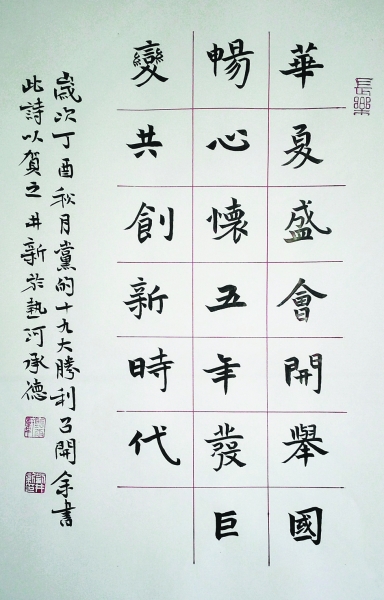 長樂
華夏盛會開舉國
暢心懷五年發巨
變共創新時代
歲次丁酉秋月黨的十九大勝利召開余書
此詩以賀之井新於熱河承德